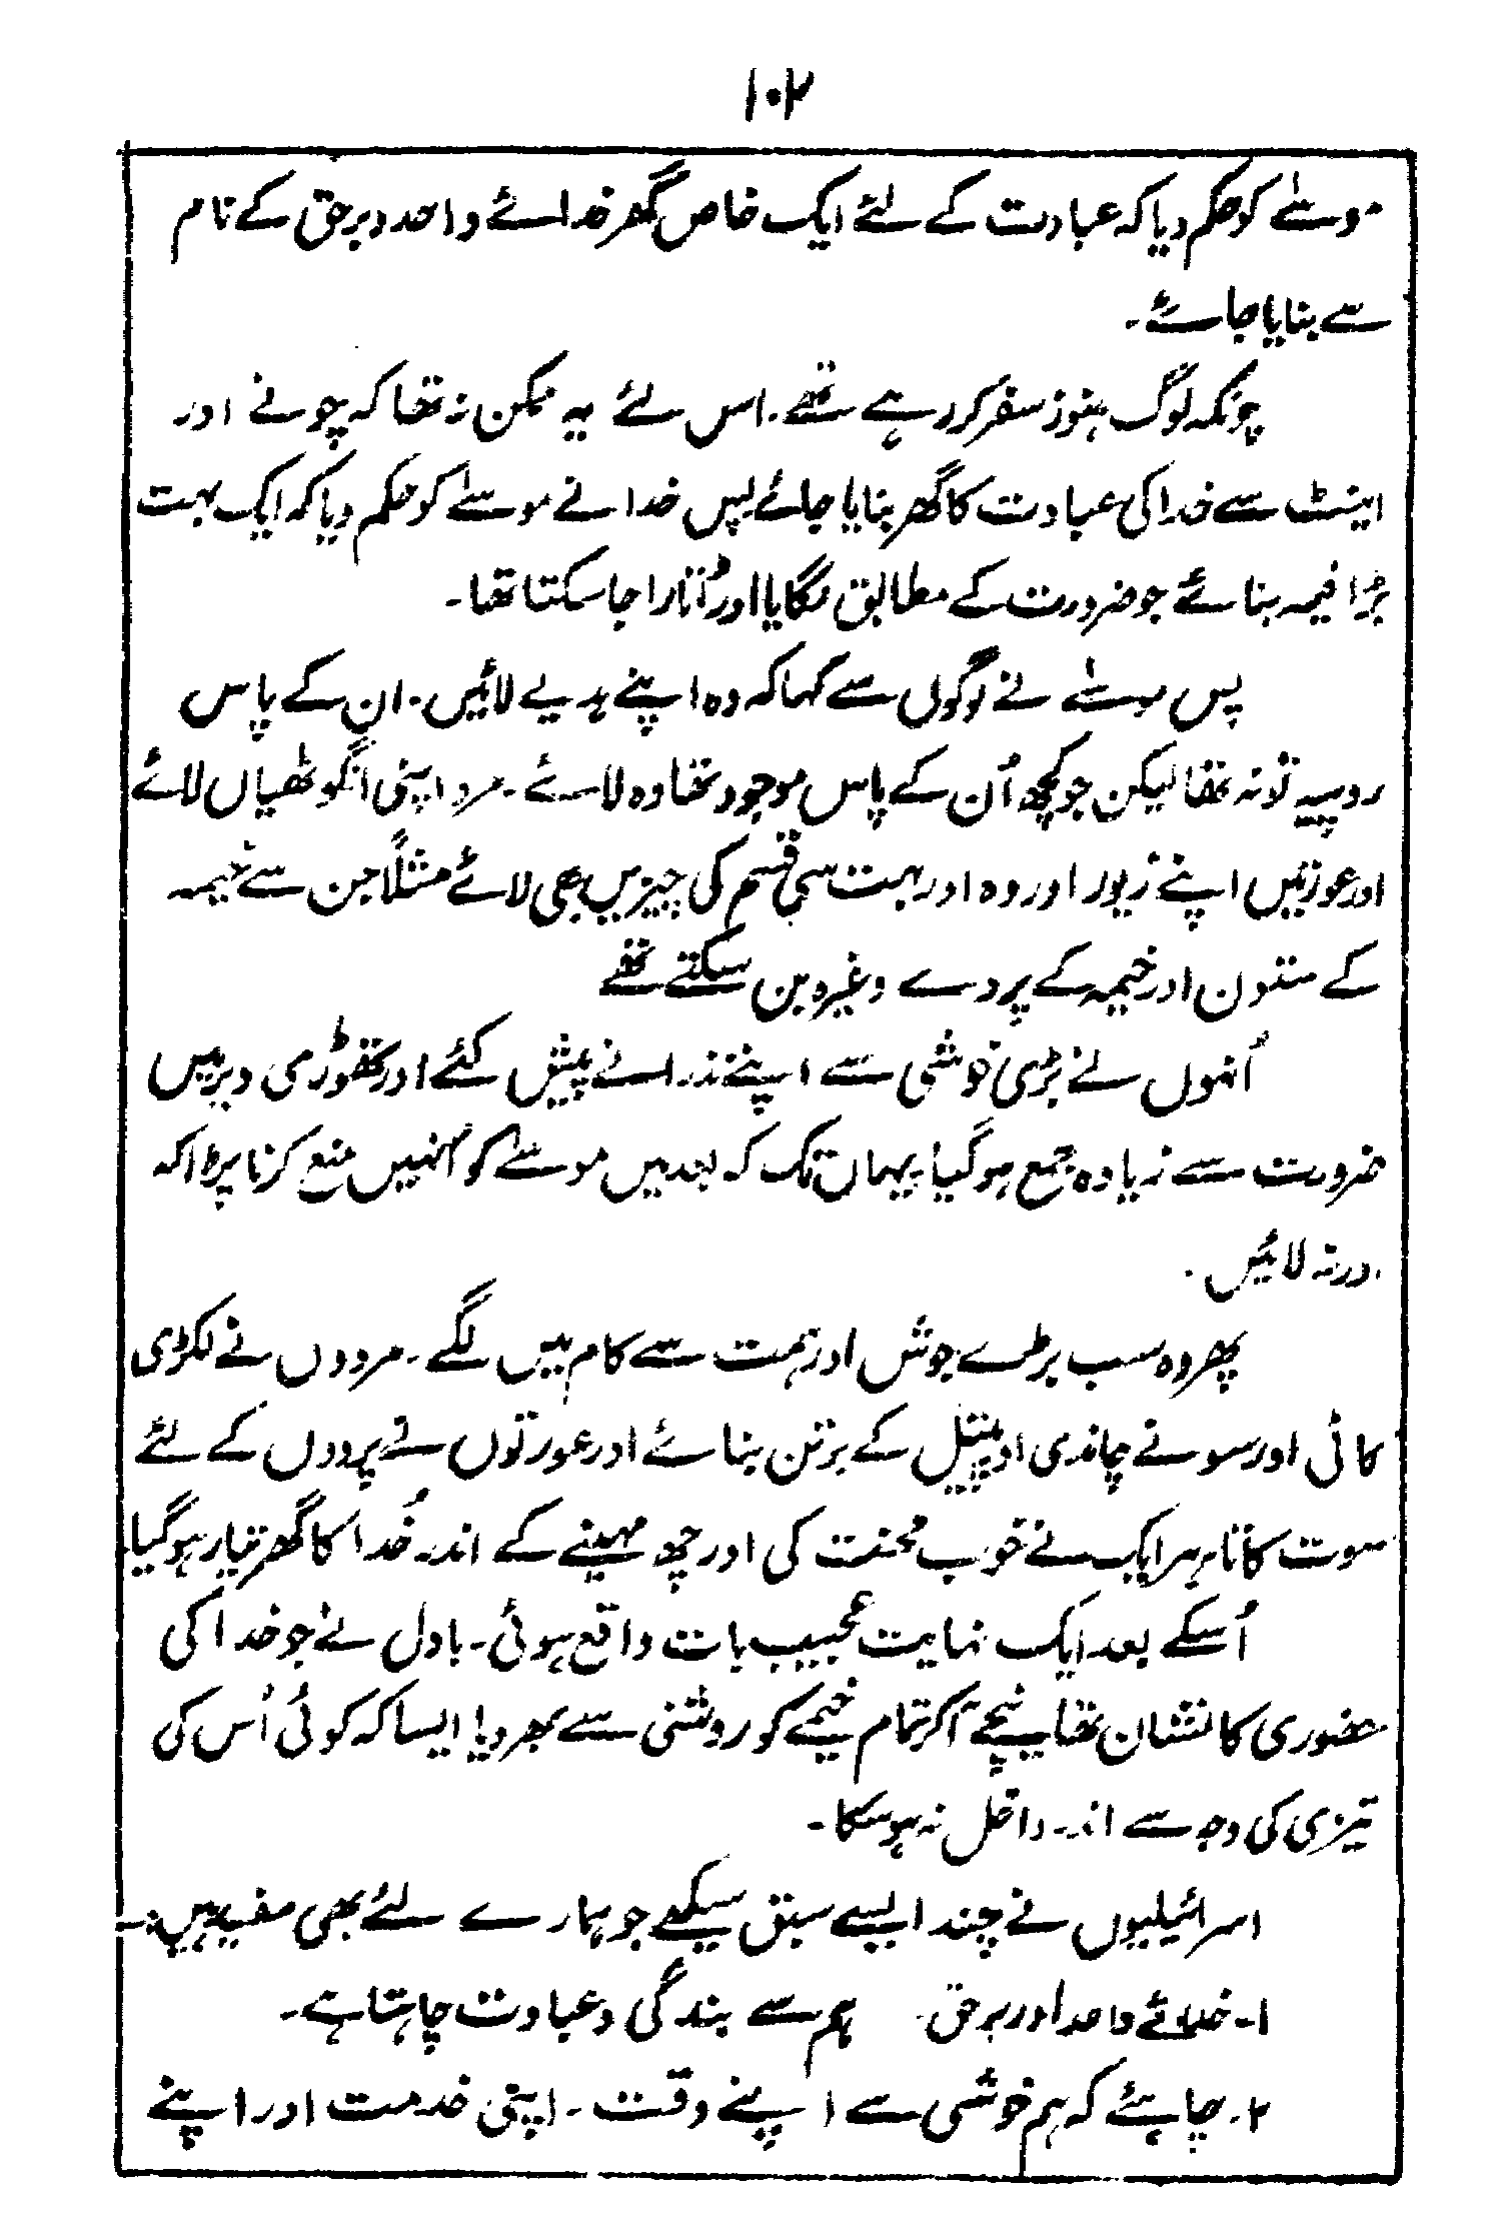 ۱۰۲
موسےٰ کو حکم دیا کہ عبادت کے لئے ایک خاص گھر خدائے واحد و برحق کے نام
سے بنایا جائے۔
چونکہ لوگ ہنوز سفر کر رہے تھے۔ اس لئے یہ ممکن نہ تھا کہ چونے اور
اینٹ سے خدا کی عبادت کا گھر بنایا جائے پس خدا نے موسےٰ کو حکم دیا کہ ایک بہت
بڑا خیمہ بنائے جو ضرورت کے مطابق لگایا اور اُتارا جا سکتا تھا۔
پس موسےٰ نے لوگوں سے کہا کہ وہ اپنے ہدیے لائیں۔ ان کے پاس
روپیہ تو نہ تھا لیکن جو کچھ اُن کے پاس موجود تھا وہ لائے۔ مرد اپنی انگوٹھیاں لائے
اور عورتیں اپنے زیور اور وہ اور بہت سی قسم کی چیزیں بھی لائے مثلاً جن سے خیمہ
کے ستون اور خیمہ کے پردے وغیرہ بن سکتے تھے
اُنہوں نے بڑی خوشی سے اپنے نذرانے پیش کئے اور تھوڑی دیر میں
ضرورت سے زیادہ جمع ہو گیا یہاں تک کہ بعد میں موسےٰ کو اُنہیں منع کرنا پڑا کہ
ور نہ لائیں۔
پھر وہ سب بڑے جوش اور ہمت سے کام میں لگے۔ مردوں نے لکڑی
کاٹی اور سونے چاندی اور پیتل کے برتن بنائے اور عورتوں نے پردوں کے لئے
سوت کاتا۔ ہر ایک نے خوب محنت کی اور چھ مہینے کے اندر خُدا کا گھر تیار ہو گیا۔
اُسکے بعد ایک نہایت عجیب بات واقع ہوئی۔ بادل نے جو خدا کی
حضوری کا نشان تھا نیچے آکر تمام خیمے کو روشنی سے بھر دیا ایسا کہ کوئی اُس کی
تیزی کی وجہ سے اندر داخل نہ ہو سکا۔
اسرائیلیوں نے چند ایسے سبق سیکھے جو ہمارے لئے بھی مفید ہیں:۔
۱۔ خدائے واحد اور برحق۔ ہم سے بندگی و عبادت چاہتا ہے۔
۲۔ چاہئے کہ ہم خوشی سے اپنے وقت۔ اپنی خدمت اور اپنے